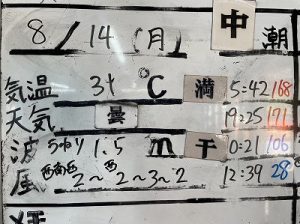 8/14(月) 中潮
気温 31℃ 満 5:42 168
天気 曇 19:25 171
波 うねり 1.5 m 干 0:21 106
風 西南西 2～西2～3～2 12:39 28